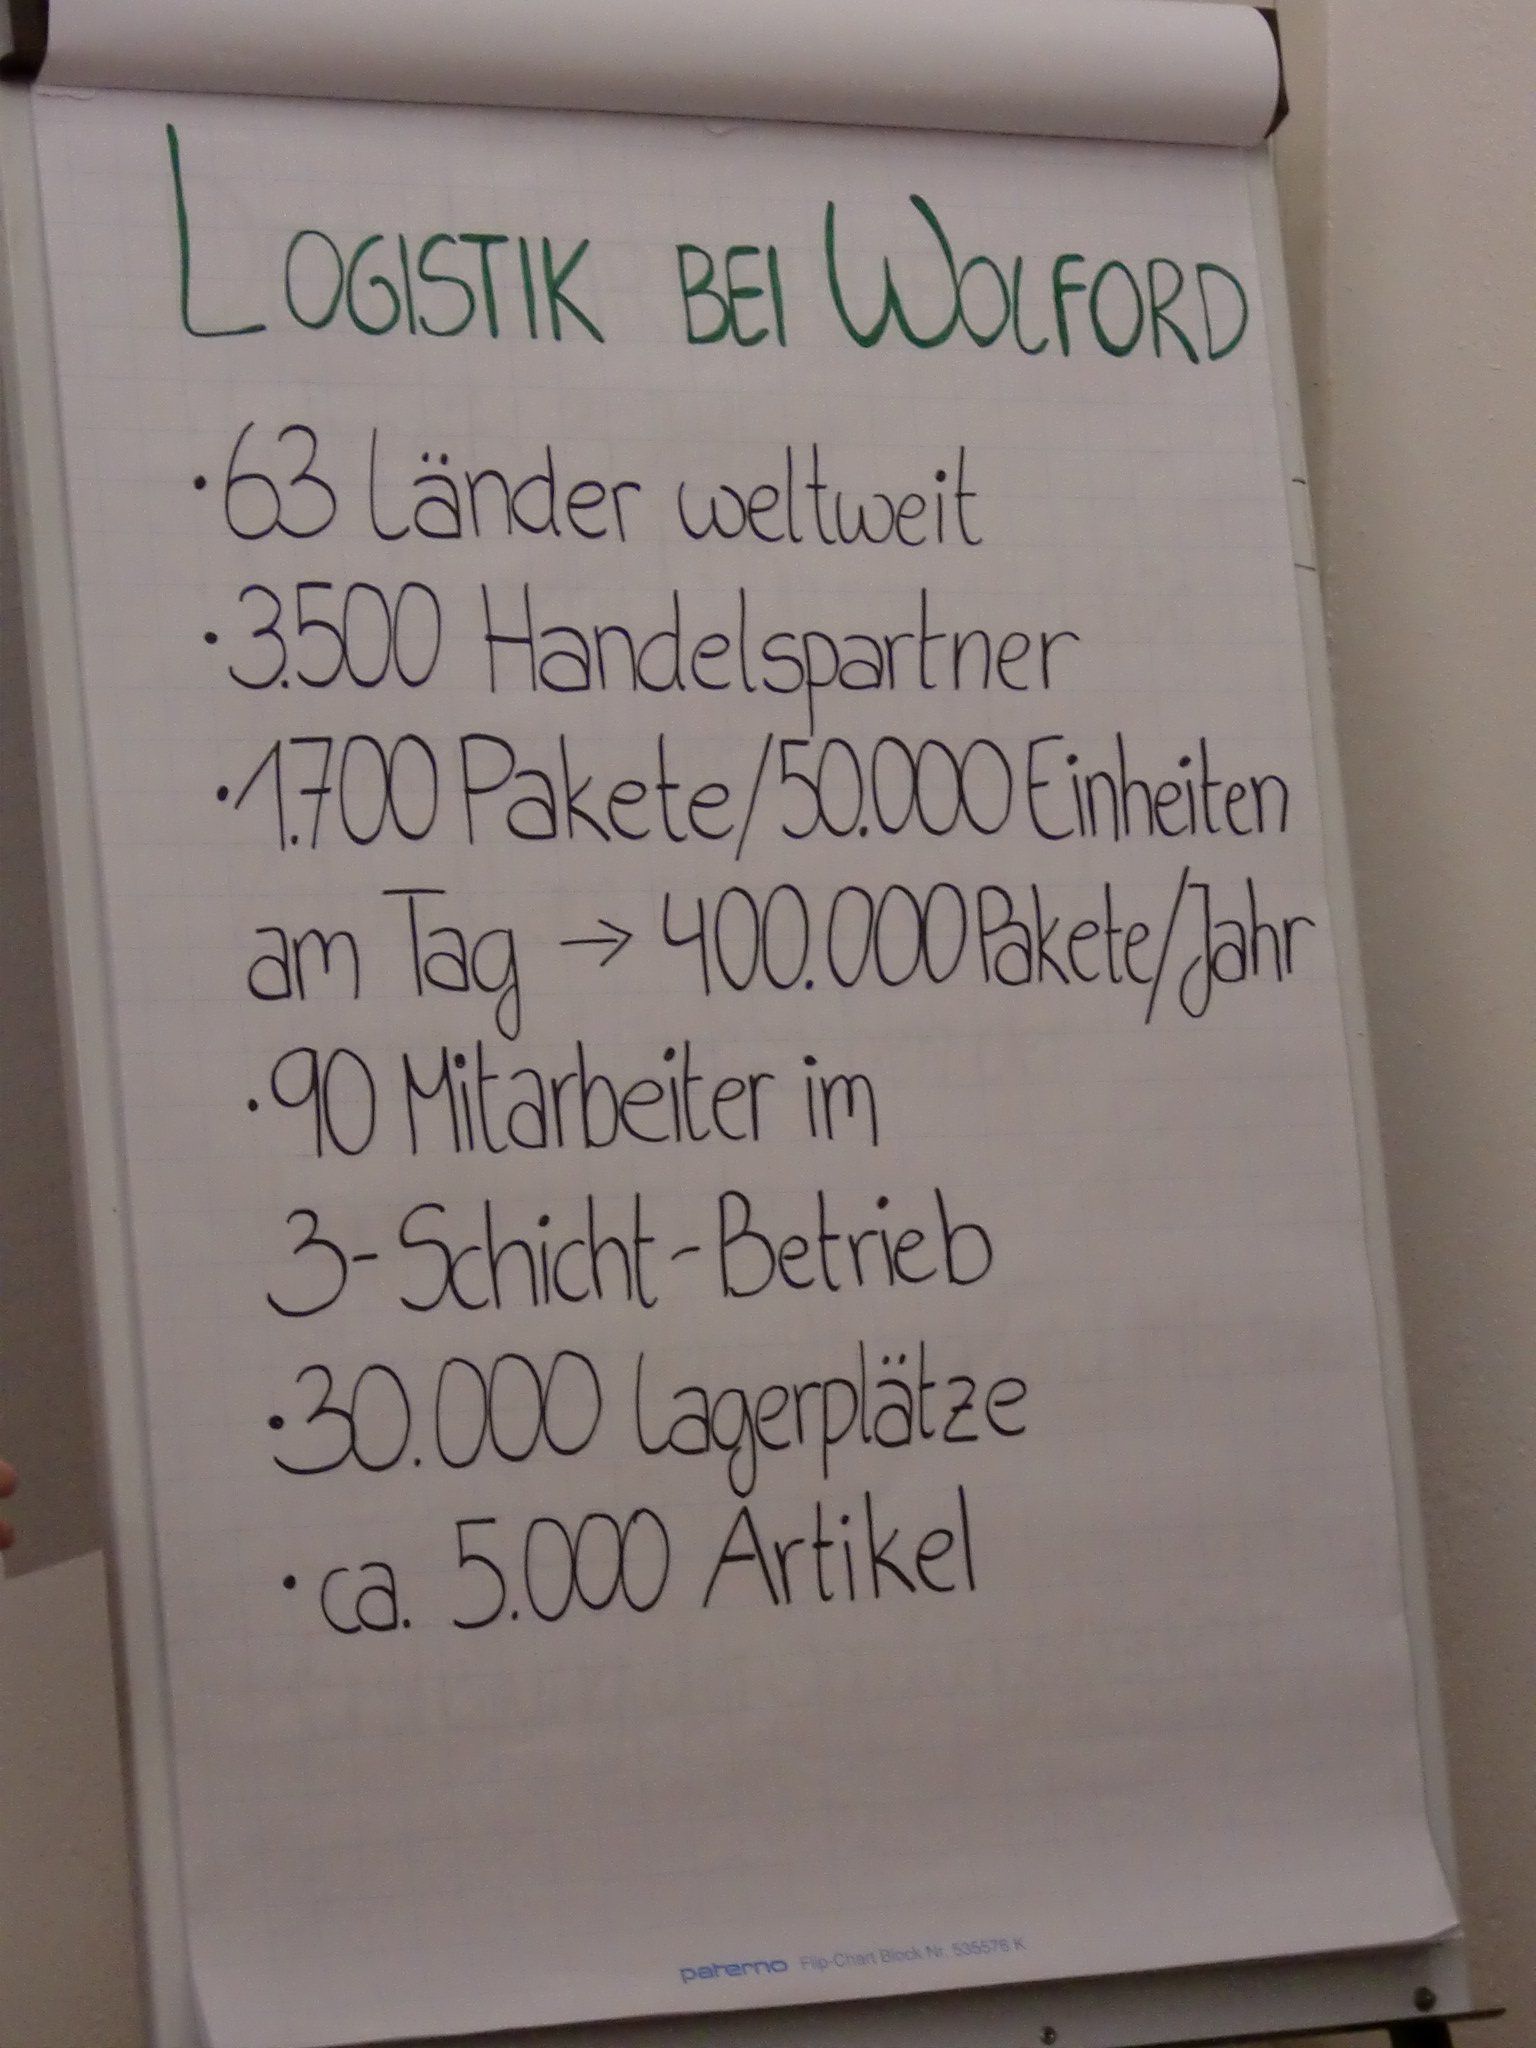 LOGISTIK BEI WOLFORD
· 63 Länder weltweit
· 3.500 Handelspartner
· 1.700 Pakete/50.000 Einheiten
am Tag → 400.000 Pakete/Jahr
· 90 Mitarbeiter im
3-Schicht-Betrieb
· 30.000 Lagerplätze
· ca. 5.000 Artikel
paterno Flip-Chart Block Nr. 535576 K